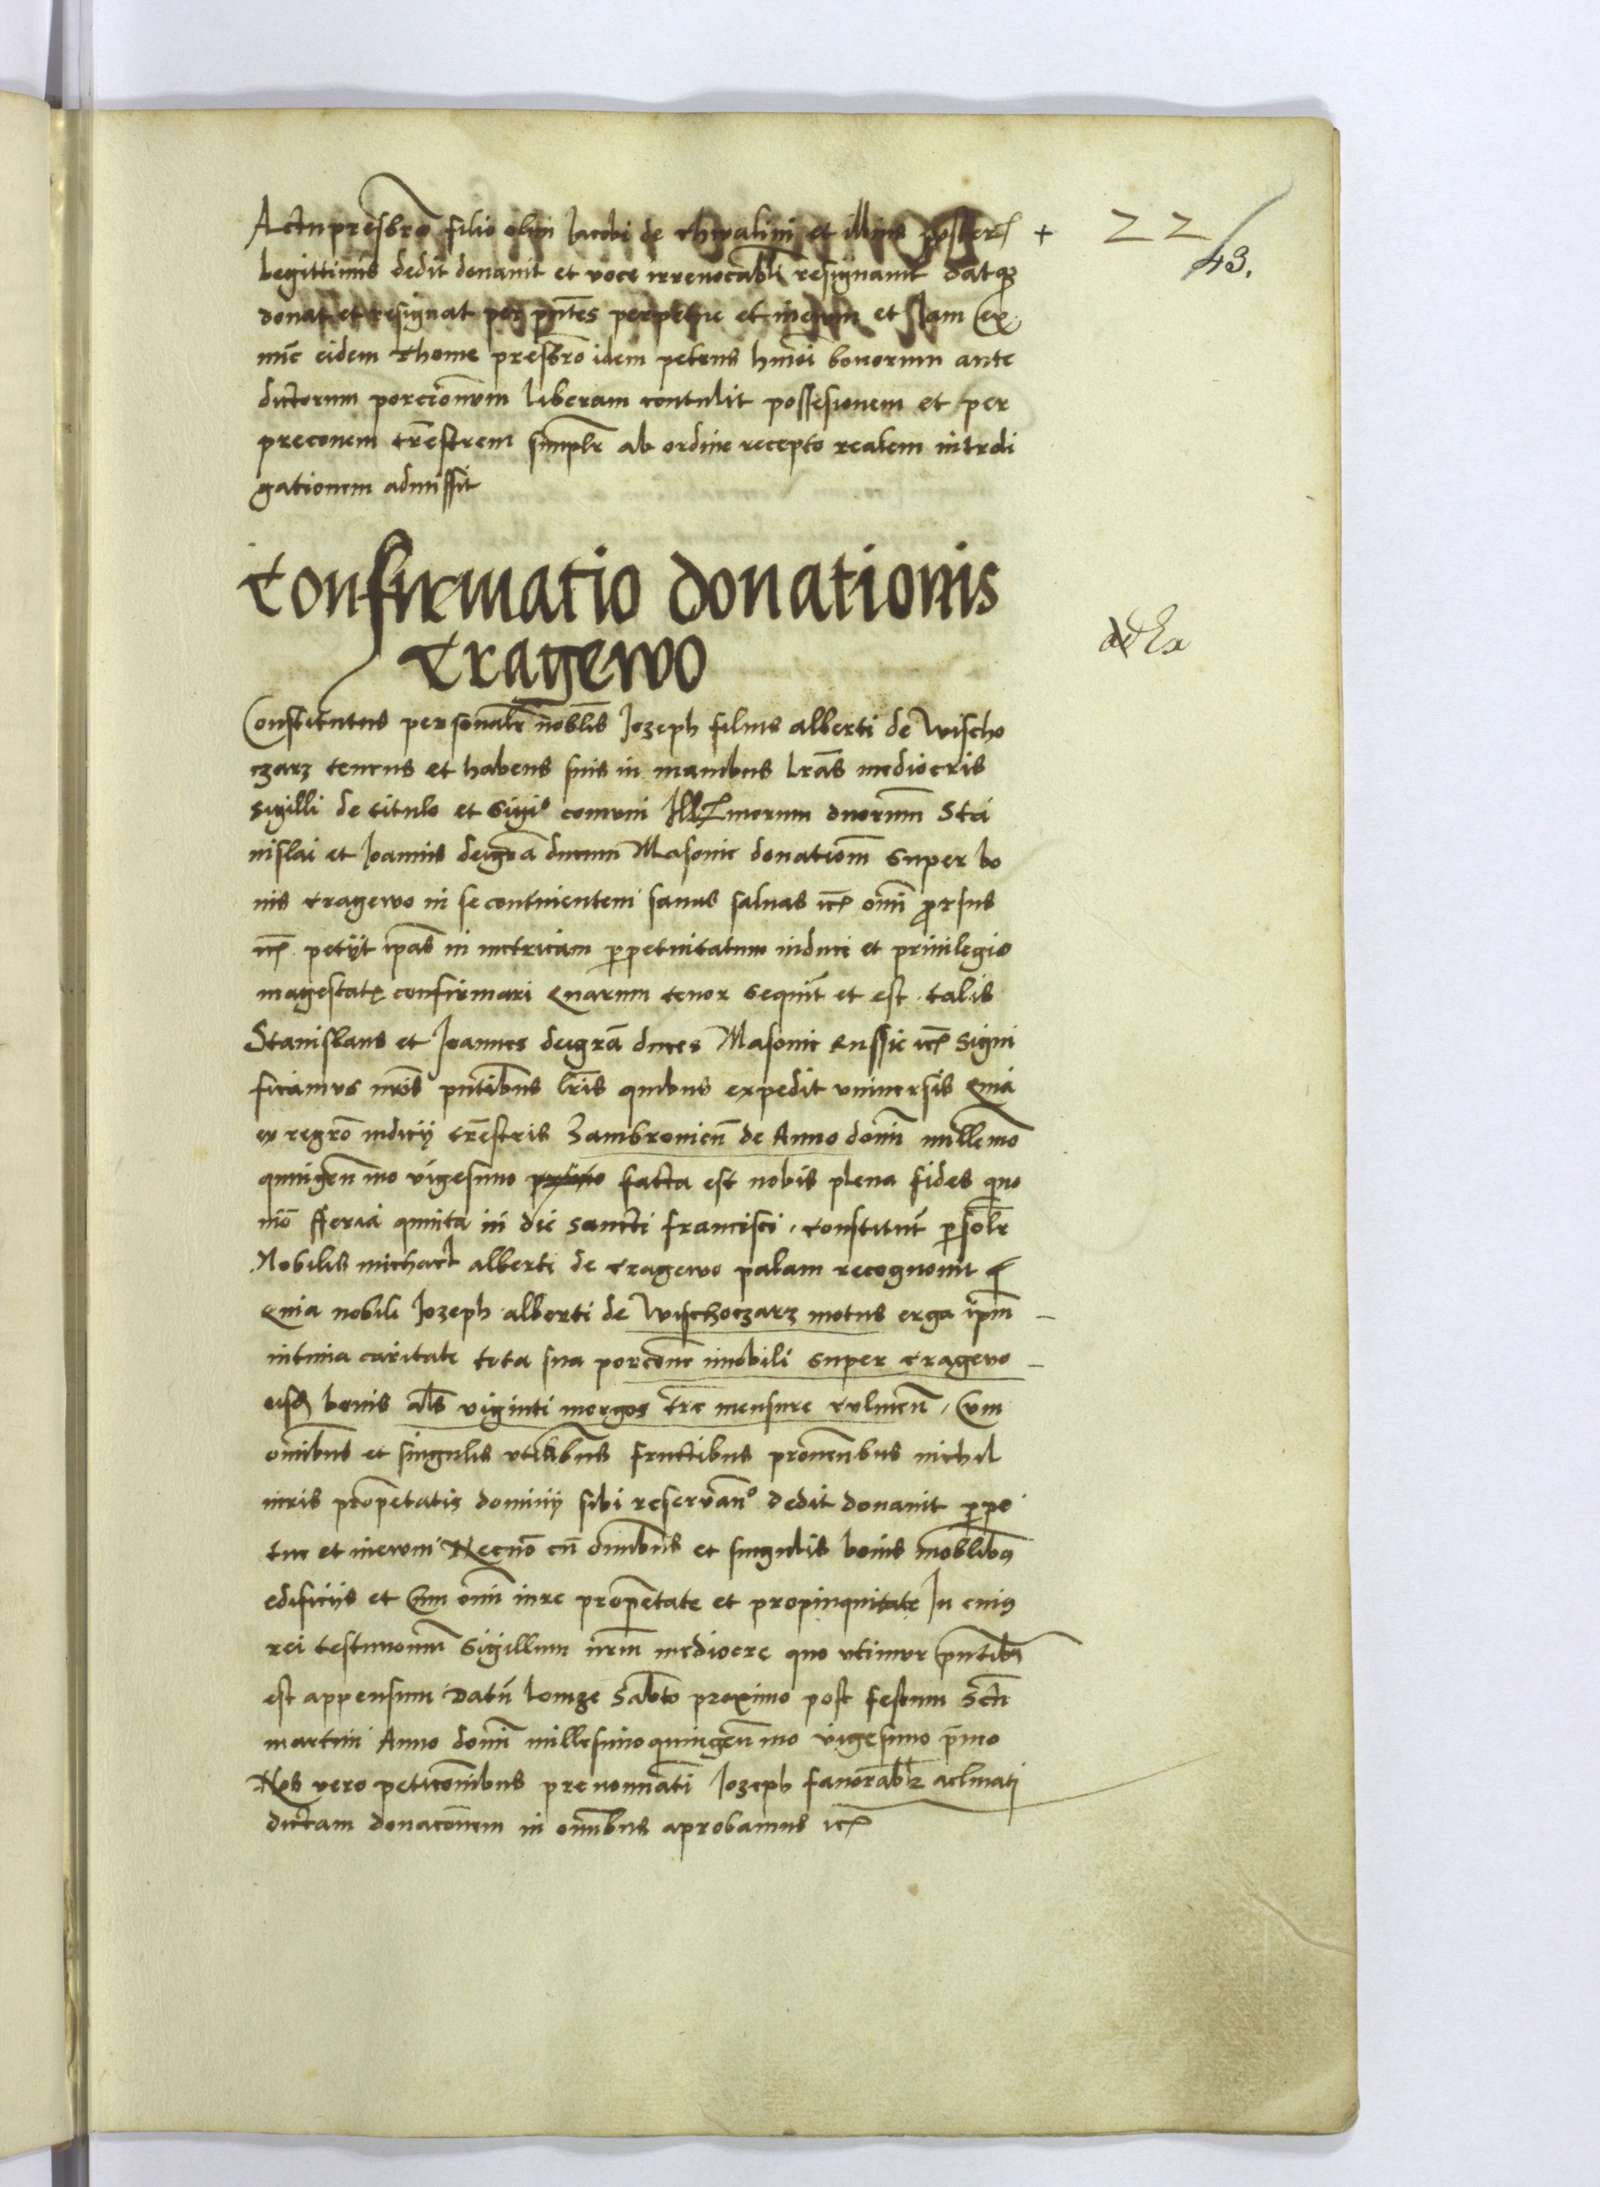 Actu presbro filio olim Jacobi de Chwalini et illius
22
43.
legittimis dedit donauit et voce irreuocabli resignauit datqz
donat et resignat per pntes perpetue et in euum et Jam ex
nuc eidem Thome presbro idem petrus hmoi bonorum ante
dictorum porcionum liberam contulit possesionem et per
preconem trestrem simplr ab ordine recepto realem introli
gationem admissit
Confirmatio donationis
Cragewo
Constitutus personalr noblis Jozeph filius alberti de Wischo
czarz tenens et habens suis in manibus lras mediocris
sigilli de titulo et comuni Illmorum duorum Sta
nislai et Joannis deigra ducum Masouie donationem super bo
nis Cragewo in se continentem sanas saluas omi prorsus
petijt ipas in metricam perpetuitatum induci et priuilegio
magestate confirmari Quarum tenor sequit et est talis
Stanislaus et Joannes deigra duces Masouie Russie signi
ficamus nris pntibus lris quibus expedit vniuersis Quia
ex regro iudicij trestris Zambrouien de Anno domi millemo
quingenmo vigesimo primo facta est nobis plena fides quo
mo fferia quinta in die sancti francisci constitut persolr
Nobilis michael alberti de Cragewo palam recognouit
Quia nobili Jozeph alberti de Wischoczarz motus erga ipm
intima caritate tota sua porcone imobili super Cragewo
bonis als viginti morgos tre mensure Culmen Cum
omibus et singulis vtilibus fructibus prouenbus nichil
iuris propetatis dominij sibi reseruan dedit donauit perpe
tue et in euum Necno cu omibus et singulis bonis moblibus
edificijs et Cum omi iure propetate et propinquitate In cuius
rei testimonium sigillum nrm mediocre quo vtimur pntibus
est appensum Datu Lomze Sabto proximo post festum Scti
martini Anno domi millesimo quingenmo vigesimo pmo
Nos vero peticonibus prenominati Jozeph fauorablr aclinati
dictam donaconem in omibus aprobamus